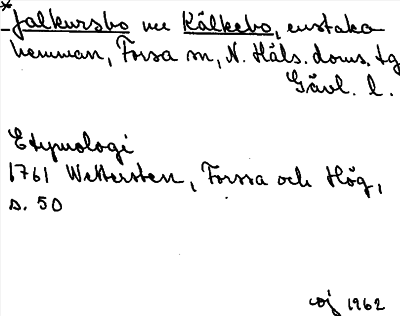 *Jalkursbo nu Kälkebo, enstaka
hemman, Forsa sn, N. Häls. doms. tg
Gävl. l.
Etymologi
1761 Wettersten, Forssa och Hög,
s. 50
1962